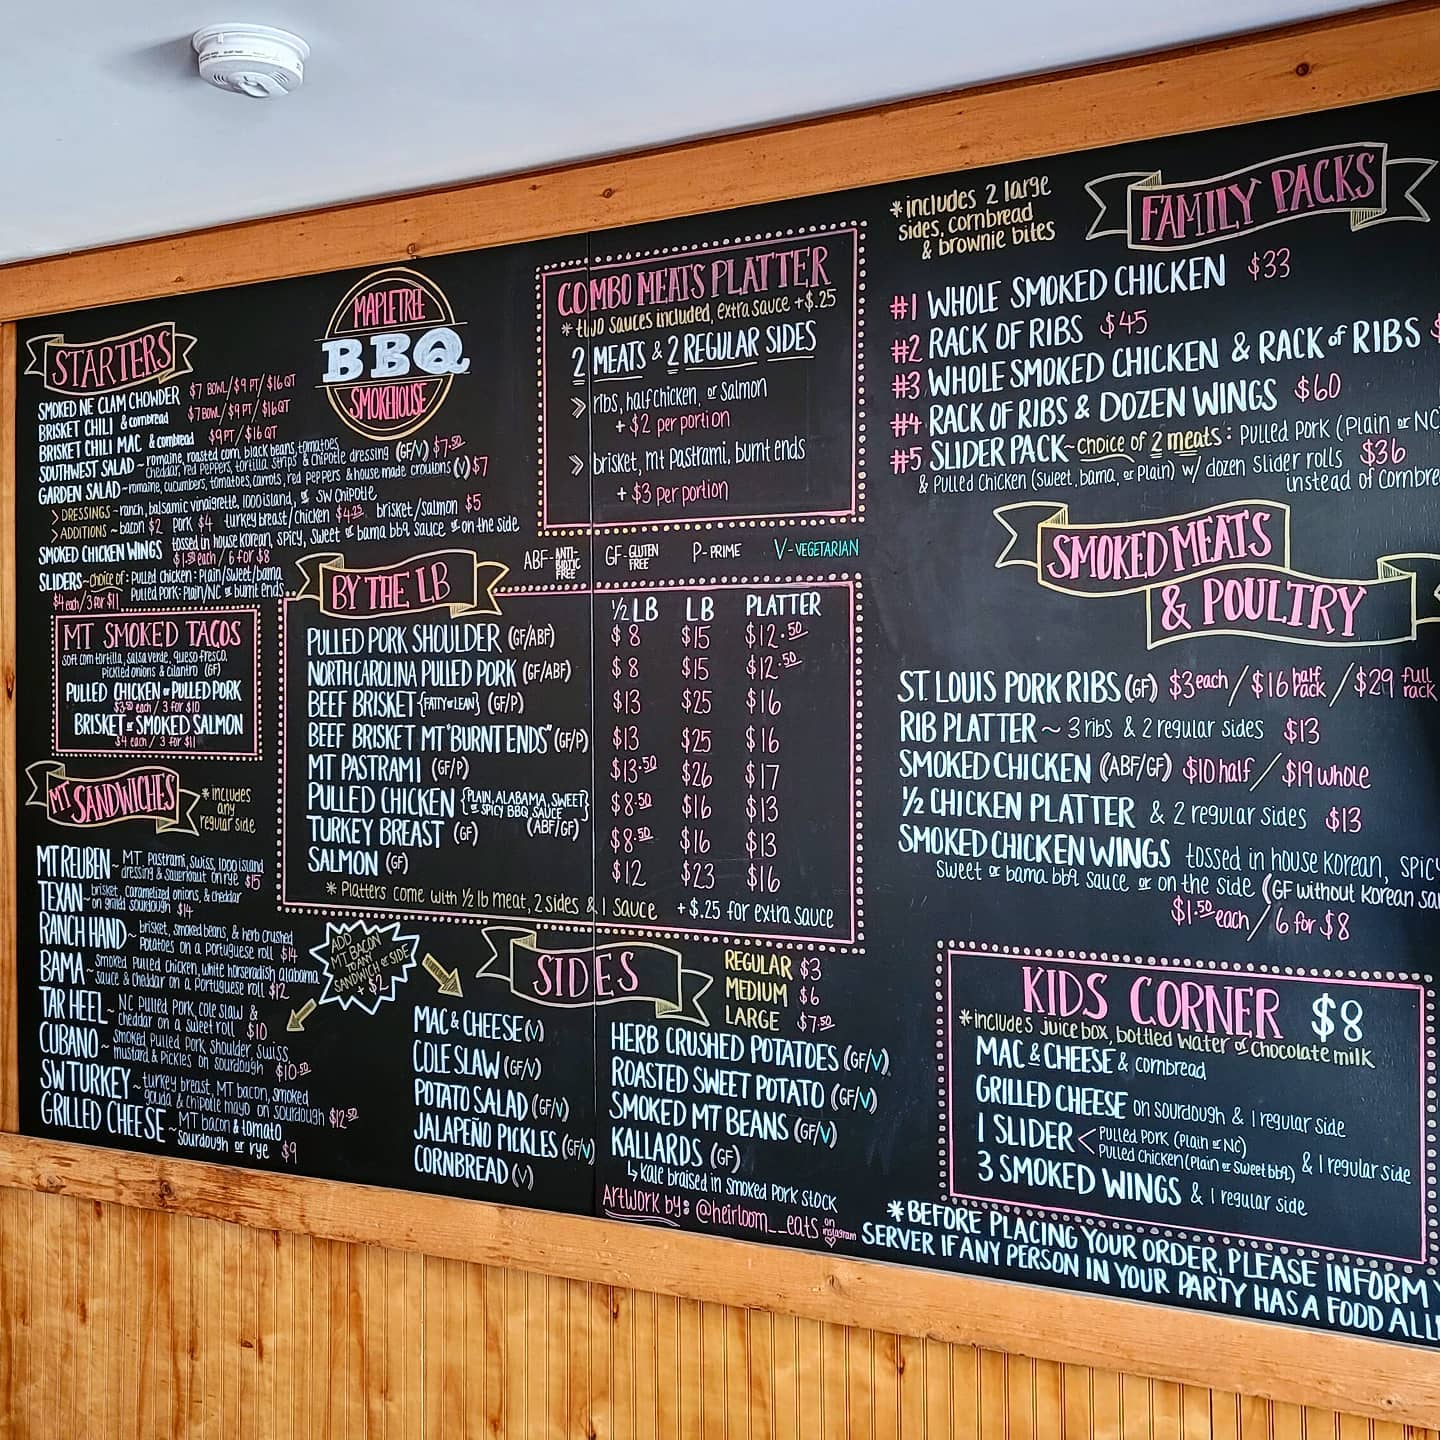 MAPLETREE
BBQ
SMOKEHOUSE
STARTERS
SMOKED NE CLAM CHOWDER $7 BOWL/$9 PT/$16 QT
BRISKET CHILI & cornbread $7 BOWL/$9 PT/$16 QT
BRISKET CHILI MAC & cornbread $9 PT/$16 QT
SOUTHWEST SALAD~romaine, roasted corn, black beans, tomatoes,
cheddar, red peppers, tortilla strips & Chipotle dressing (GF/V) $7.50
GARDEN SALAD~romaine, cucumbers, tomatoes, carrots, red peppers & house made croutons (V) $7
> DRESSINGS~ranch, balsamic vinaigrette, 1000 island, or SW Chipotle
> ADDITIONS~bacon $2 pork $4 turkey breast/chicken $4.25 brisket/salmon $5
SMOKED CHICKEN WINGS tossed in house Korean, spicy, sweet or bama bbq sauce or on the side
$1.50 each / 6 for $8
SLIDERS~choice of: pulled chicken: plain/sweet/bama
pulled pork: Plain/NC or burnt ends
$4 each / 3 for $11
MT SMOKED TACOS
soft corn tortilla, salsa verde, queso fresco,
pickled onions & cilantro (GF)
PULLED CHICKEN or PULLED PORK
$3.50 each / 3 for $10
BRISKET or SMOKED SALMON
$4 each / 3 for $11
MT SANDWICHES
*includes
any
regular side
MT REUBEN~MT. Pastrami, Swiss, 1000 island
dressing & Sauerkraut on rye $15
TEXAN~brisket, caramelized onions, & cheddar
on grilled sourdough $14
RANCH HAND~brisket, smoked beans, & herb crushed
Potatoes on a Portuguese roll $14
BAMA~smoked Pulled Chicken, white horseradish alabama
sauce & cheddar on a Portuguese roll $12
TAR HEEL~NC Pulled Pork, cole slaw &
cheddar on a sweet roll $10
CUBANO~smoked Pulled Pork shoulder, swiss,
mustard & Pickles on sourdough $10.50
SW TURKEY~turkey breast, MT bacon, smoked
gouda & chipotle mayo on sourdough $12.50
GRILLED CHEESE~MT bacon & tomato
sourdough or rye $9
ADD
MT BACON
TO ANY
SANDWICH or SIDE
+ $2
COMBO MEATS PLATTER
*two sauces included, extra sauce +$.25
2 MEATS & 2 REGULAR SIDES
» ribs, half chicken, or salmon
+ $2 per portion
» brisket, mt Pastrami, burnt ends
+ $3 per portion
ABF-ANTI-BIOTIC FREE GF-GLUTEN FREE P-PRIME V-VEGETARIAN
BY THE LB
½ LB LB PLATTER
PULLED PORK SHOULDER (GF/ABF) $8 $15 $12.50
NORTH CAROLINA PULLED PORK (GF/ABF) $8 $15 $12.50
BEEF BRISKET {FATTY or LEAN} (GF/P) $13 $25 $16
BEEF BRISKET MT "BURNT ENDS" (GF/P) $13 $25 $16
MT PASTRAMI (GF/P) $13.50 $26 $17
PULLED CHICKEN {PLAIN, ALABAMA, SWEET or SPICY BBQ SAUCE} (ABF/GF) $8.50 $16 $13
TURKEY BREAST (GF) $8.50 $16 $13
SALMON (GF) $12 $23 $16
*Platters come with ½ lb meat, 2 sides & 1 sauce +$.25 for extra sauce
SIDES
REGULAR $3
MEDIUM $6
LARGE $7.50
MAC & CHEESE (V)
COLE SLAW (GF/V)
POTATO SALAD (GF/V)
JALAPEÑO PICKLES (GF/V)
CORNBREAD (V)
HERB CRUSHED POTATOES (GF/V)
ROASTED SWEET POTATO (GF/V)
SMOKED MT BEANS (GF/V)
KALLARDS (GF)
↳ kale braised in smoked pork stock
Artwork by: @heirloom__eats on instagram
*includes 2 large
sides, cornbread
& brownie bites
FAMILY PACKS
#1 WHOLE SMOKED CHICKEN $33
#2 RACK OF RIBS $45
#3 WHOLE SMOKED CHICKEN & RACK of RIBS $
#4 RACK OF RIBS & DOZEN WINGS $60
#5 SLIDER PACK~choice of 2 meats: Pulled Pork (Plain or NC)
& Pulled Chicken (sweet, bama, or Plain) w/ dozen slider rolls $36
instead of cornbre
SMOKED MEATS
& POULTRY
ST. LOUIS PORK RIBS (GF) $3 each / $16 half rack / $29 full rack
RIB PLATTER~3 ribs & 2 regular sides $13
SMOKED CHICKEN (ABF/GF) $10 half / $19 whole
½ CHICKEN PLATTER & 2 regular sides $13
SMOKED CHICKEN WINGS tossed in house Korean, spicy
sweet or bama bbq sauce or on the side (GF without Korean sau
$1.50 each / 6 for $8
KIDS CORNER $8
*includes juice box, bottled water or chocolate milk
MAC & CHEESE & cornbread
GRILLED CHEESE on sourdough & 1 regular side
1 SLIDER < Pulled Pork (Plain or NC)
Pulled chicken (Plain or Sweet bbq) & 1 regular side
3 SMOKED WINGS & 1 regular side
*BEFORE PLACING YOUR ORDER, PLEASE INFORM Y
SERVER IF ANY PERSON IN YOUR PARTY HAS A FOOD ALL